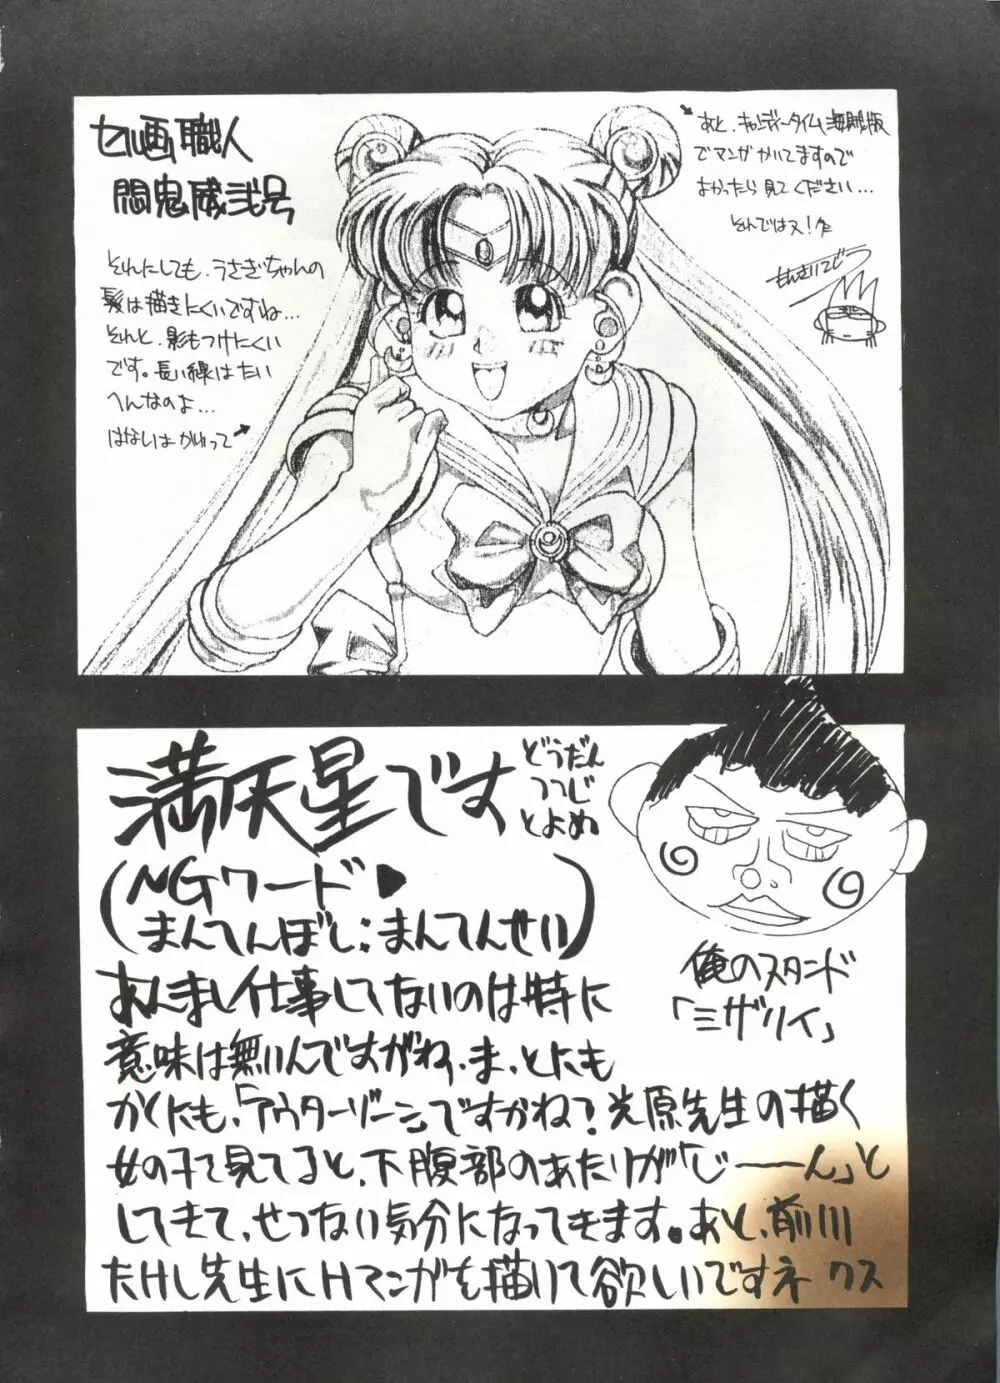 セル画職人
悶鬼威弐号
それにしても、うさぎちゃんの
髪は描きにくいですね…
それと、影もつけにくい
です。長い線はたい
へんなのよ…
はなしは かわって
あと、キャンディータイム海賊版
でマンガかいてますので
よかったら見てください…
そんでは
もんきいにごう
満天星です
どうだん
つつじ
とよめ
(NGワード♥
まんてんぼし:まんてんせい)
あんまし仕事してないのは特に
意味は無いんですがね、ま、とにも
かくにも、「アウターゾーン」ですかね?光原先生の描く
女の子て見てると、下腹部のあたりが「じーーん」と
してきて、せつない気分になってきます。あと、前川
たけし先生にHマンガを描いて欲しいですネ クス
俺のスタンド
「ミザリィ」